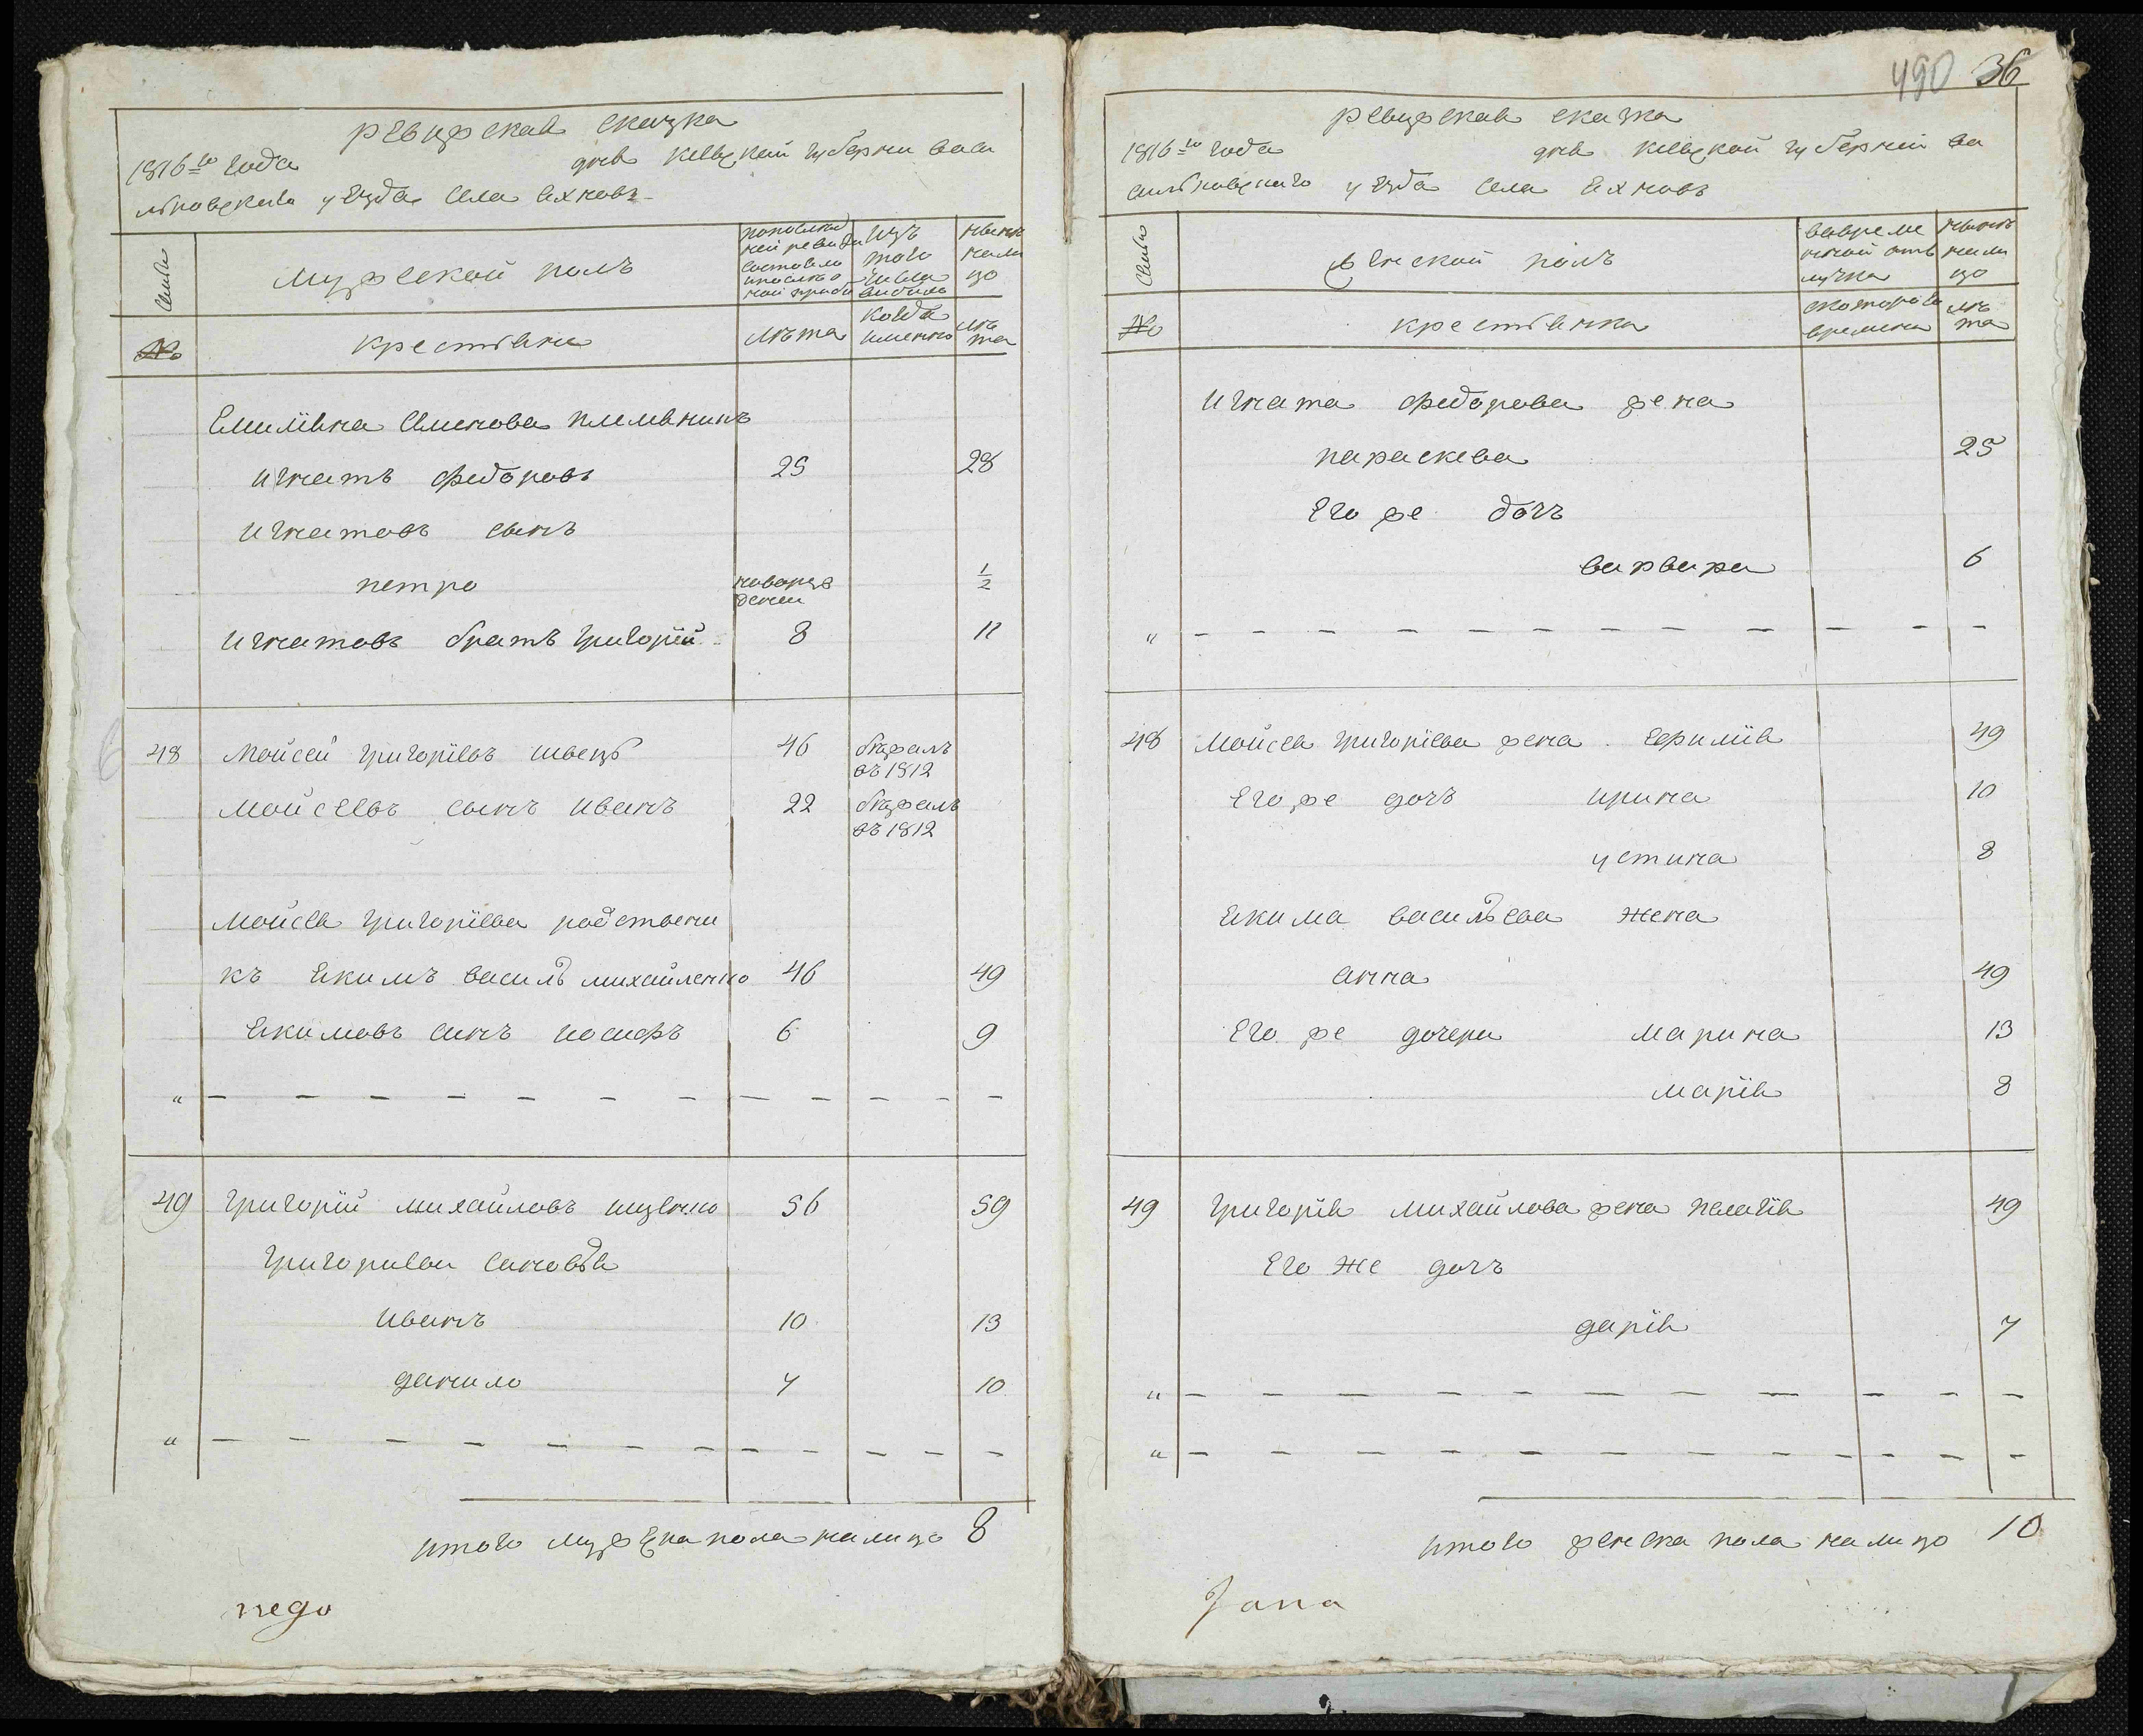 ревизская сказка
1816го года дня киевской губерни васи
льковскаго уезда села яхновъ
семьи
мужеской полъ
попослед
ней ревизи
состояло
ипослѣо
ной прибы
изъ
того
числа
выбыло
нынѣ
нали
цо
№
крестьяне
лѣта
когда
именно
лѣ
та
Емилияна Семенова племянникъ
игнатъ федоровъ 25 28
игнатовъ сынъ
петро новорож
дений 1/2
игнатовъ братъ григорій 8 11
48 Мойсей григоріевъ швецъ 46 бѣжалъ
въ 1812
мойсеевъ сынъ иванъ 22 бѣжалъ
въ 1812
мойсея григоріева родствени
къ якимъ василѣ михайленко 46 49
якимовъ синъ иосифъ 6 9
" — — — — — — — — — — —
49 григорій михайловъ шевченко 56 59
григориеви синовья
иванъ 10 13
данило 7 10
" — — — — — — — — — — —
итого мужеска пола налицо 8
nego
490 36
ревизская сказка
1816го года дня киевской губерний ва
сильковскаго уезда села яхновъ
семьи
женской полъ
вовреме
нной отъ
лучка
нынѣ
нали
цо
№
крестьянки
скотораго
времени
лѣ
та
игната федорова жена
параскева 25
его же дочь
варвара 6
" — — — — — — — — — — —
48 мойсея григоріева жена ефимія 49
его же дочъ ирина 10
устина 8
якима васильева жена
анна 49
его же дочери марина 13
марія 8
49 григорія михайлова жена пелагія 49
его же дочъ
дарія 7
" — — — — — — — — — — —
" — — — — — — — — — — —
итого женска пола налицо 10
Jana